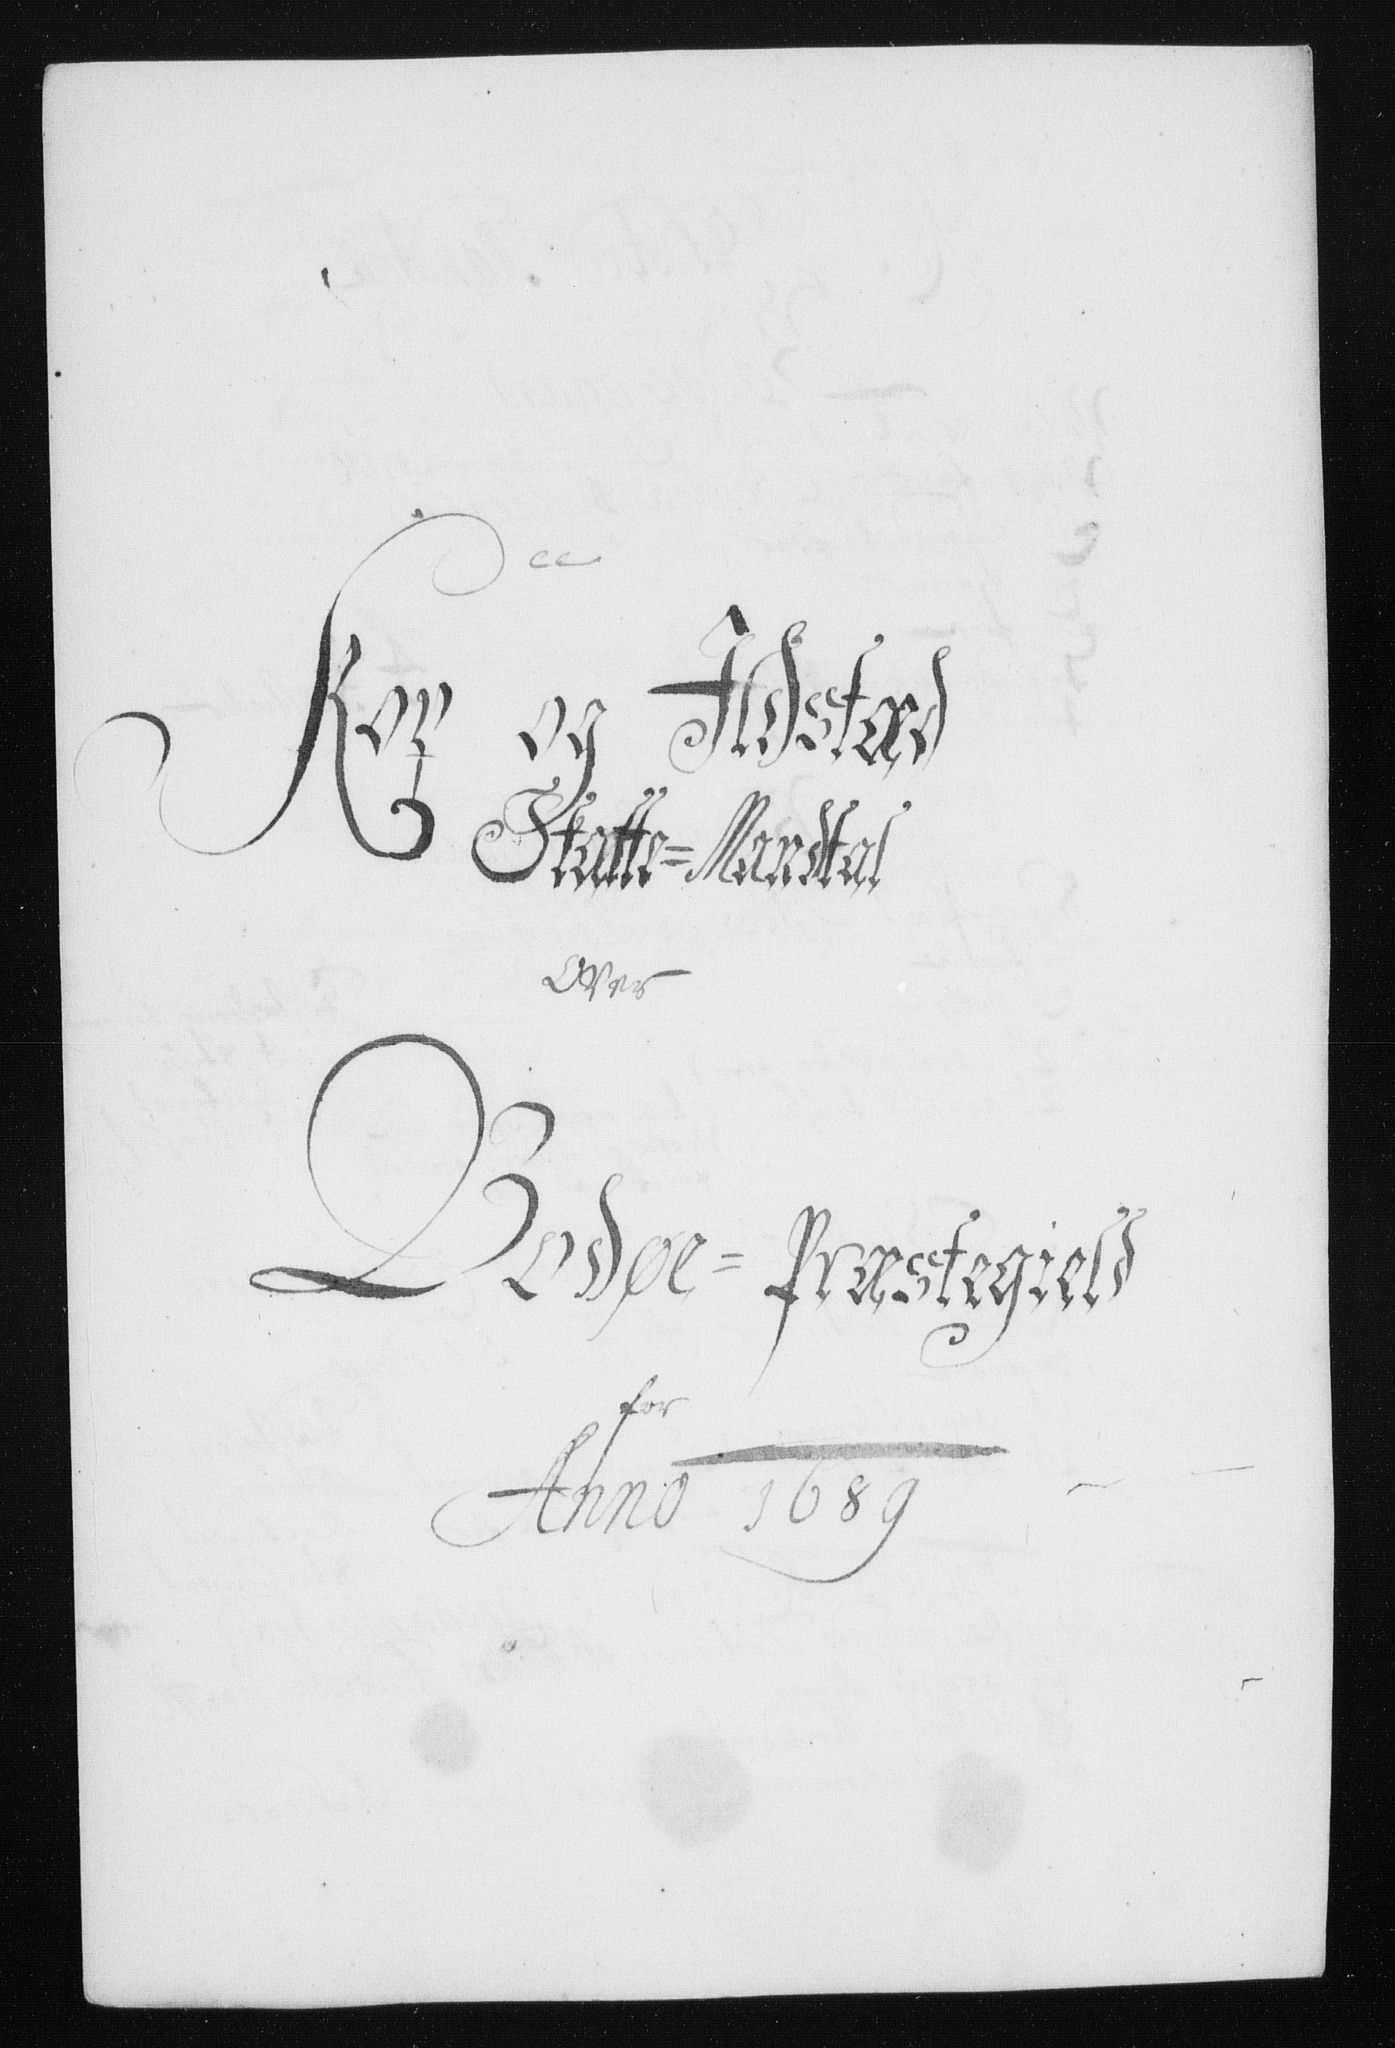 cc
Kop og Ildsted
Skatte=Mandtal
Over
Bodøe=Præstegield
for
Anno 1689